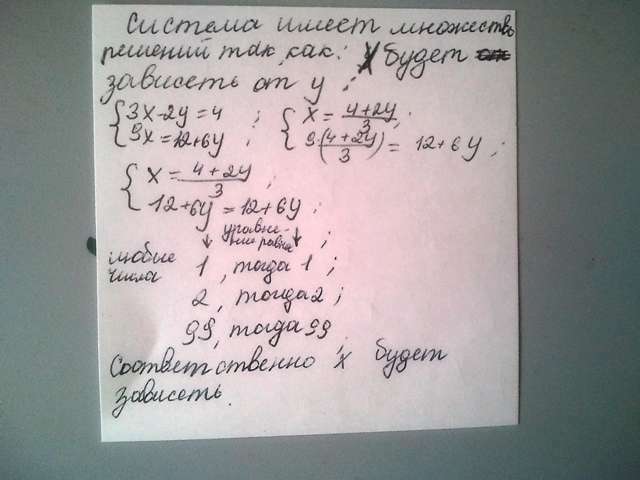 Система имеет множеств
решений так как: x будет
зависеть от y ;
{3x-2y=4 ; {x=\frac{4+2y}{3};
{9x=12+6y ; {9·(\frac{4+2y}{3})=12+6y ;
{x=\frac{4+2y}{3};
{12+6y=12+6y ;
↓ уравне- ↓
ния равна ;
любые
числа 1, тогда 1 ;
2, тогда 2 ;
99, тогда 99 ;
Соответственно x будет
зависеть.